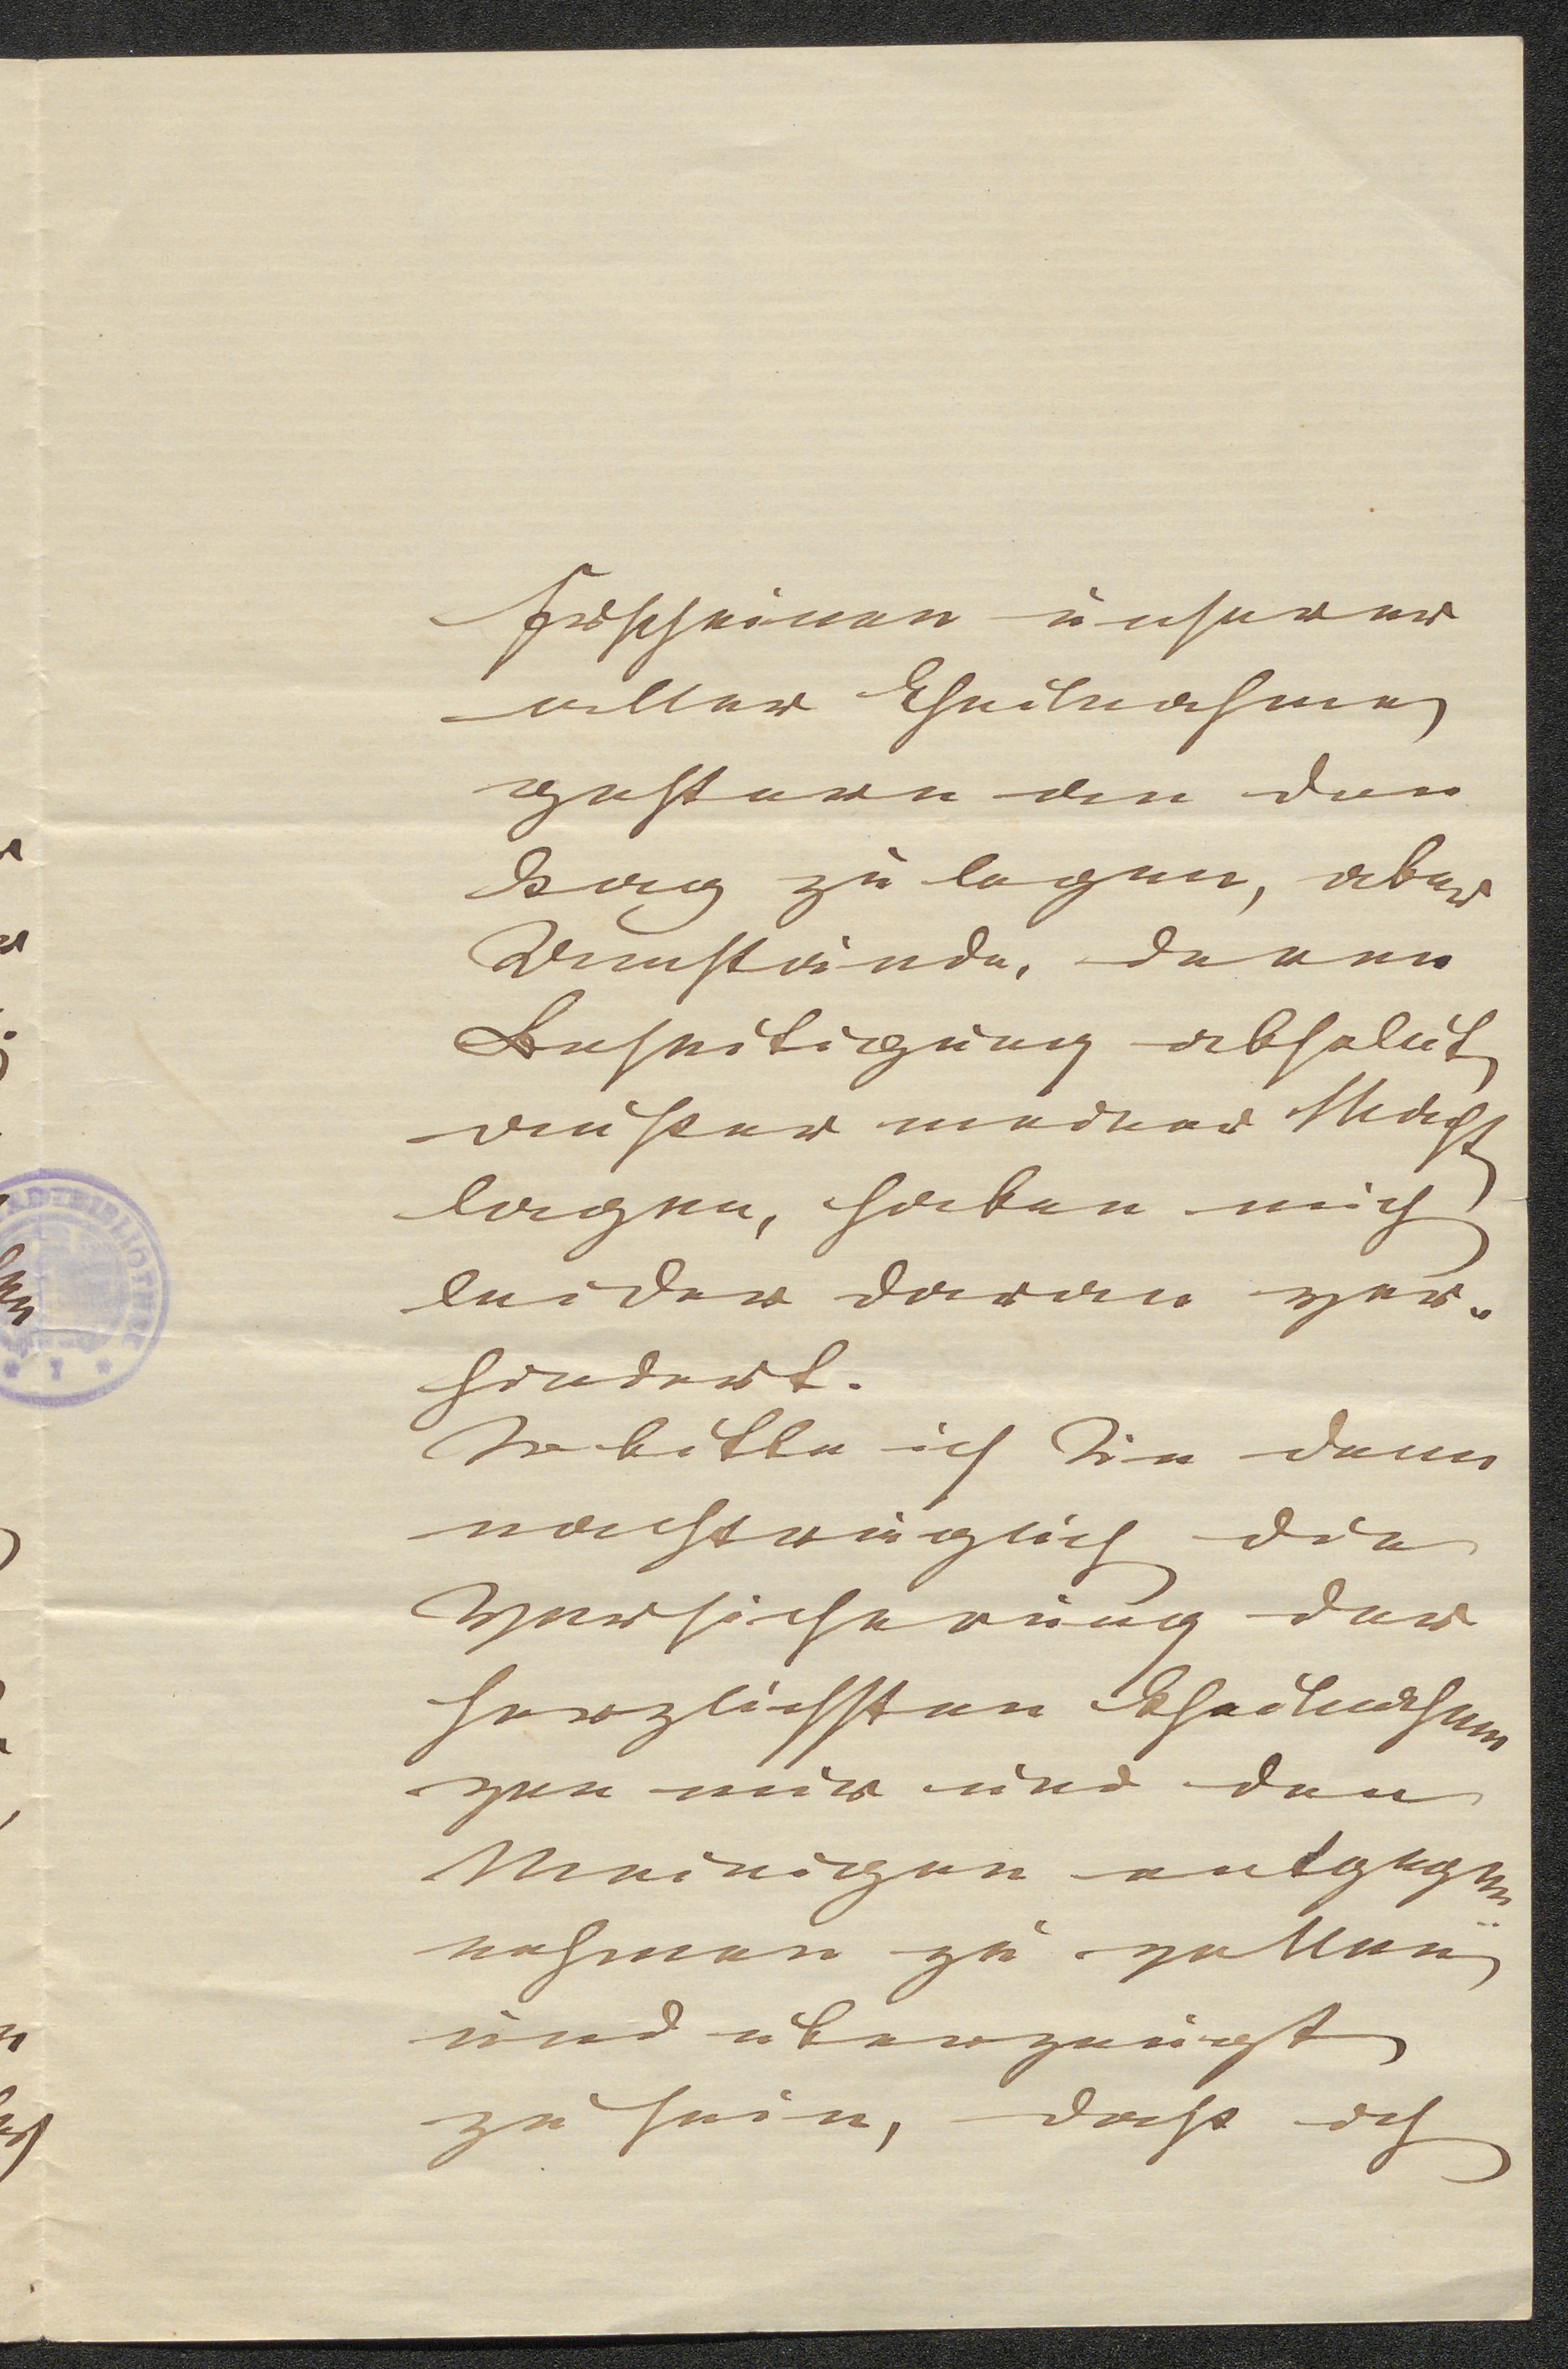 Erscheinen unserer
aller Theilnahme
gestern an den
Tag zu legen, aber
Umstände, deren
Beseitigung absolut
außer meiner Macht
lagen, haben mich
leider daran ver-
hindert.
So bitte ich Sie denn
nachträglich die
Versicherung der
herzlichsten Theilnahme
von mir und den
Meinigen entgegen
nehmen zu wollen
und überzeugt
zu sein, daß ich